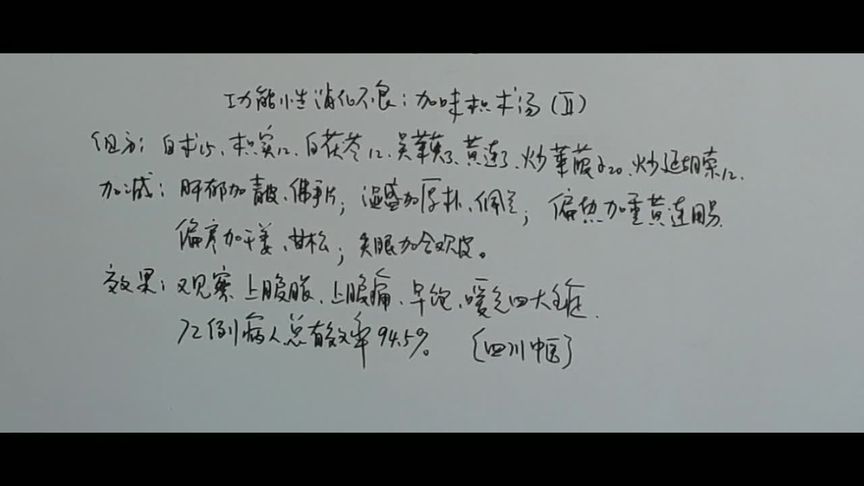 功能性消化不良：加味枳术汤（Ⅱ）
组方：白术15、枳实12、白茯苓12、吴茱萸3、黄连3、炒莱菔子20、炒延胡索12.
加减：肝郁加青皮、佛手片；湿盛加厚朴、佩兰；偏热加重黄连用量.
偏寒加干姜、甘松；失眠加合欢皮。
效果：观察上腹胀、上腹痛、早饱、嗳气四大症.
72例病人总有效率94.5%。（四川中医）